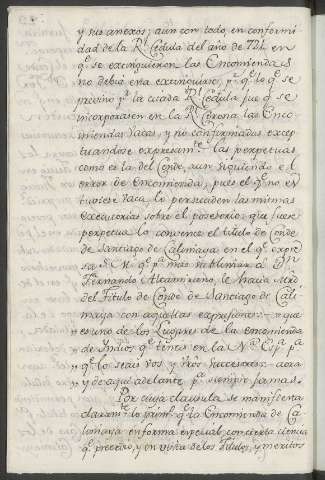 y sus anexos; aun con todo, en conformi
dad de la Rl. Cedula del año de 721 en
q.e se extinguieron las Encomiendas
no debia esta extinguirse, p.r q.e lo q.e se
previno p.r la citada Rl. Cedula fue q.e se
incorporasen en la Rl. Corona las Enco-
miendas vacas, y no confirmadas excep
tuandose expresam.te las perpetuas
como es la del Conde, aun siguiendo el
error de Encomienda, pues el q.e no es
tuviese vaca, lo persuaden las mismas
executorias sobre el posesorio: que fuese
perpetua lo convence el titulo de Conde
de Santiago de Calimaya en el q.e expre
sa S. M. q.e p.a mas sublimar a D.n
Fernando Altamirano, le hacia Mrd
del Titulo de Conde de Santiago de Cali
maya con aquellas expresiones: que
es uno de los Lugares de la encomienda
de Indios q.e teneis en la Na. Espa. p.a
q.e lo seais vos y vros Successores aora
y de aqui adelante p.a siempre jamas.
Por cuya clausula se manifiesta
claram.te lo prim.o q.e la Encomienda de Ca
limaya en forma especial, con cierta ciencia
q.e precedio, y en vista de los Titulos, y meritos